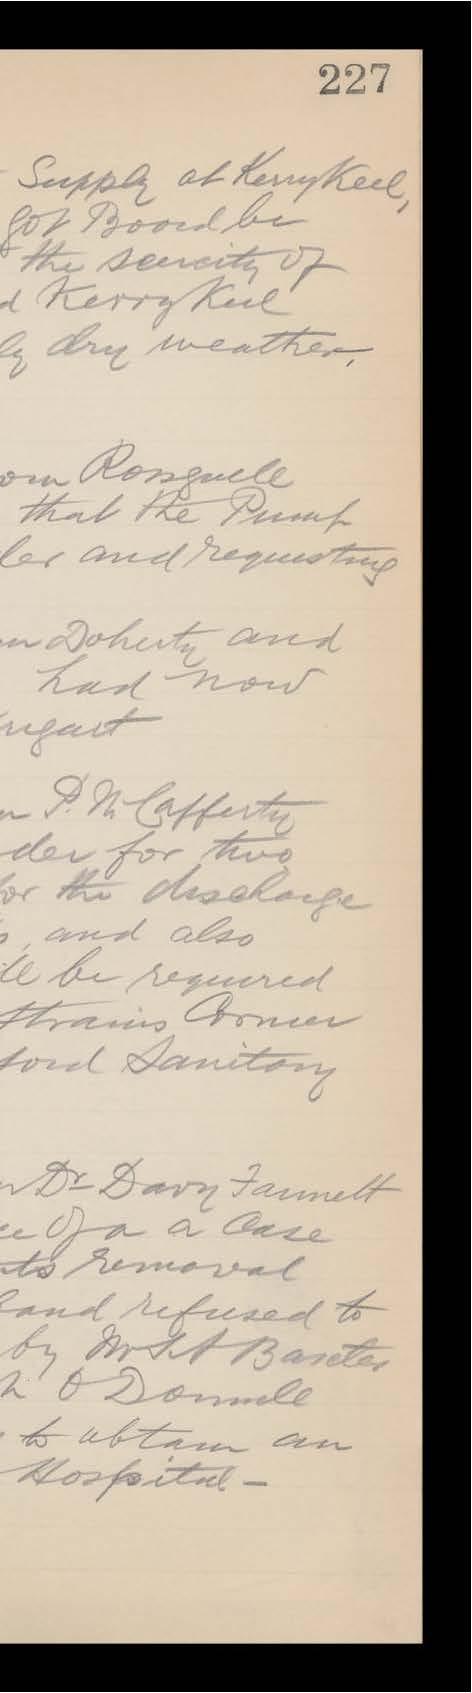 227
Supply at Kerrykeel,
got Board be
the scarcity of
d Kerrykeel
ly dry weather.
om Rosguell
that the Pump
der and requesting
m Doherty and
had now
ngart
m P. McCafferty
der for two
for the discharge
s, and also
ill be required
Strains Corner
ford Sanitary
m Dr Davy Fannett
ce of a a Case
its removal
and refused to
by Mr Baxter
h O Donnell
to obtain an
Hospital -